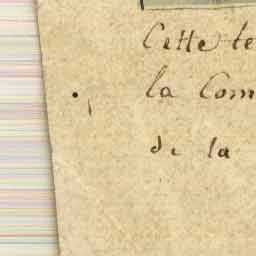 Cette te
la Com
de la